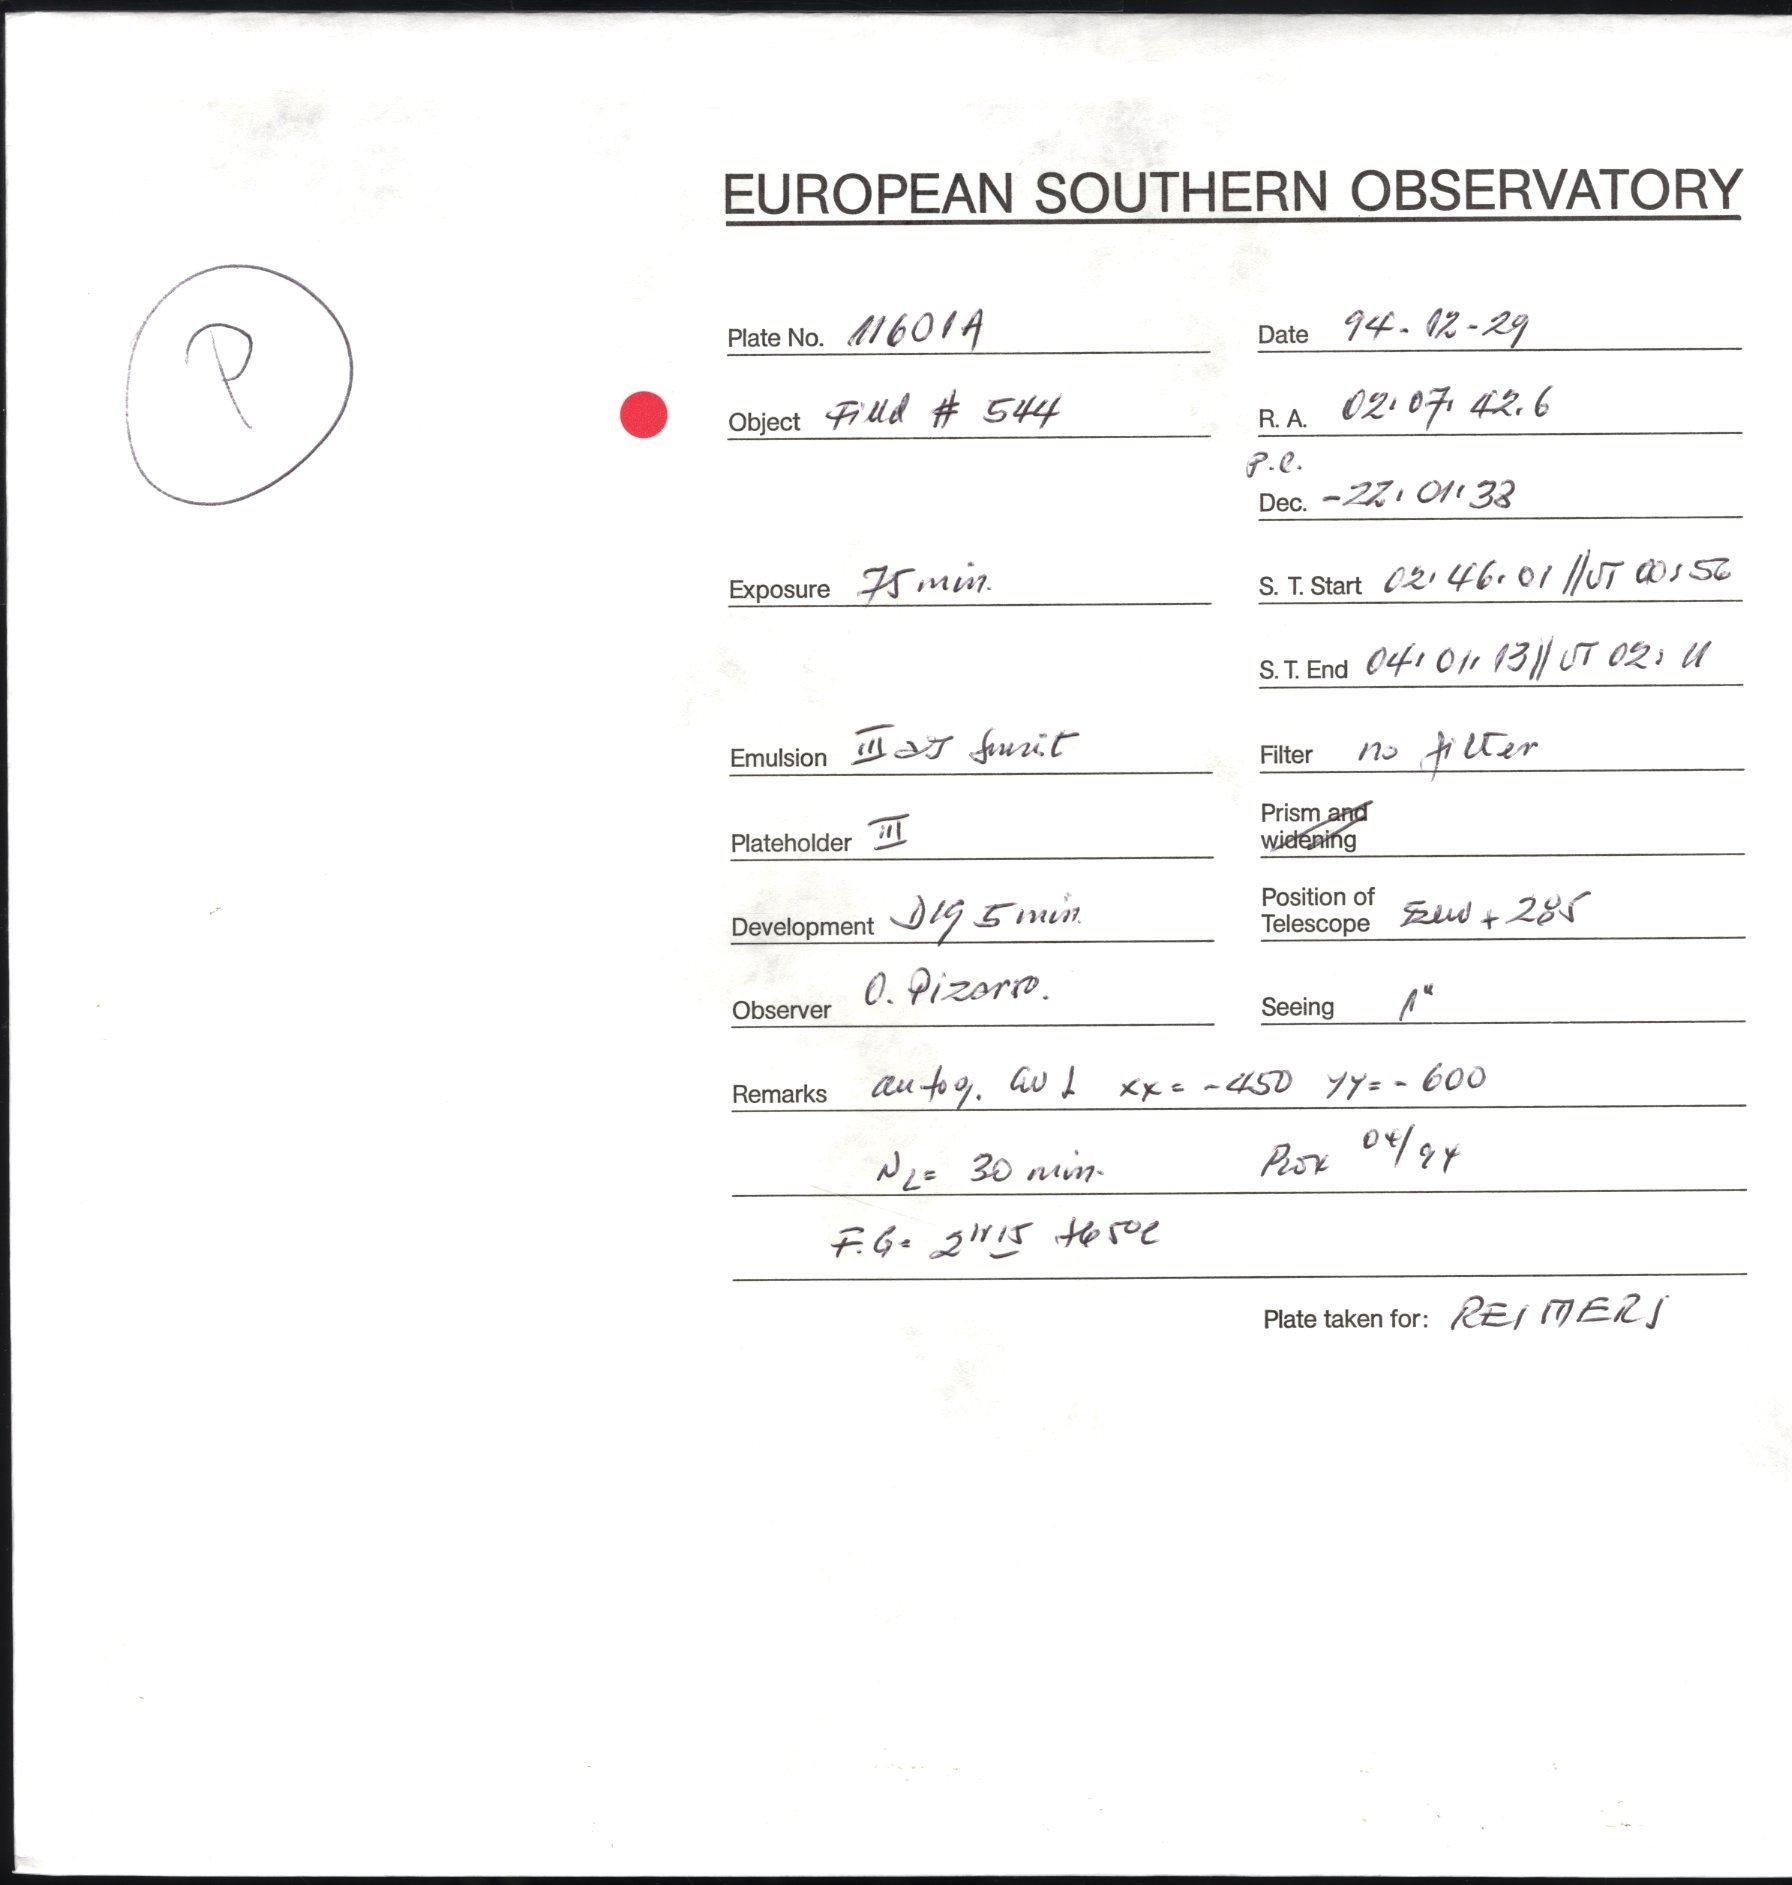 EUROPEAN SOUTHERN OBSERVATORY
P
Plate No. 11601A
Date 94-12-29
Object Field # 544
R. A. 02:07:42.6
P.C.
Dec. -22:01:33
Exposure 75 min.
S. T. Start 02:46:01 // UT 00:56
S. T. End 04:01:13 // UT 02:11
Emulsion III aJ
Filter no filter
Plateholder III
Prism and
widening
Development D19 5 min
Position of
Telescope + 285
Observer O. Pizarro.
Seeing 1"
Remarks autog. xx = -450 yy = -600
NL= 30 min. 04/94
F.G= 2H15 65°C
Plate taken for: REIMERS